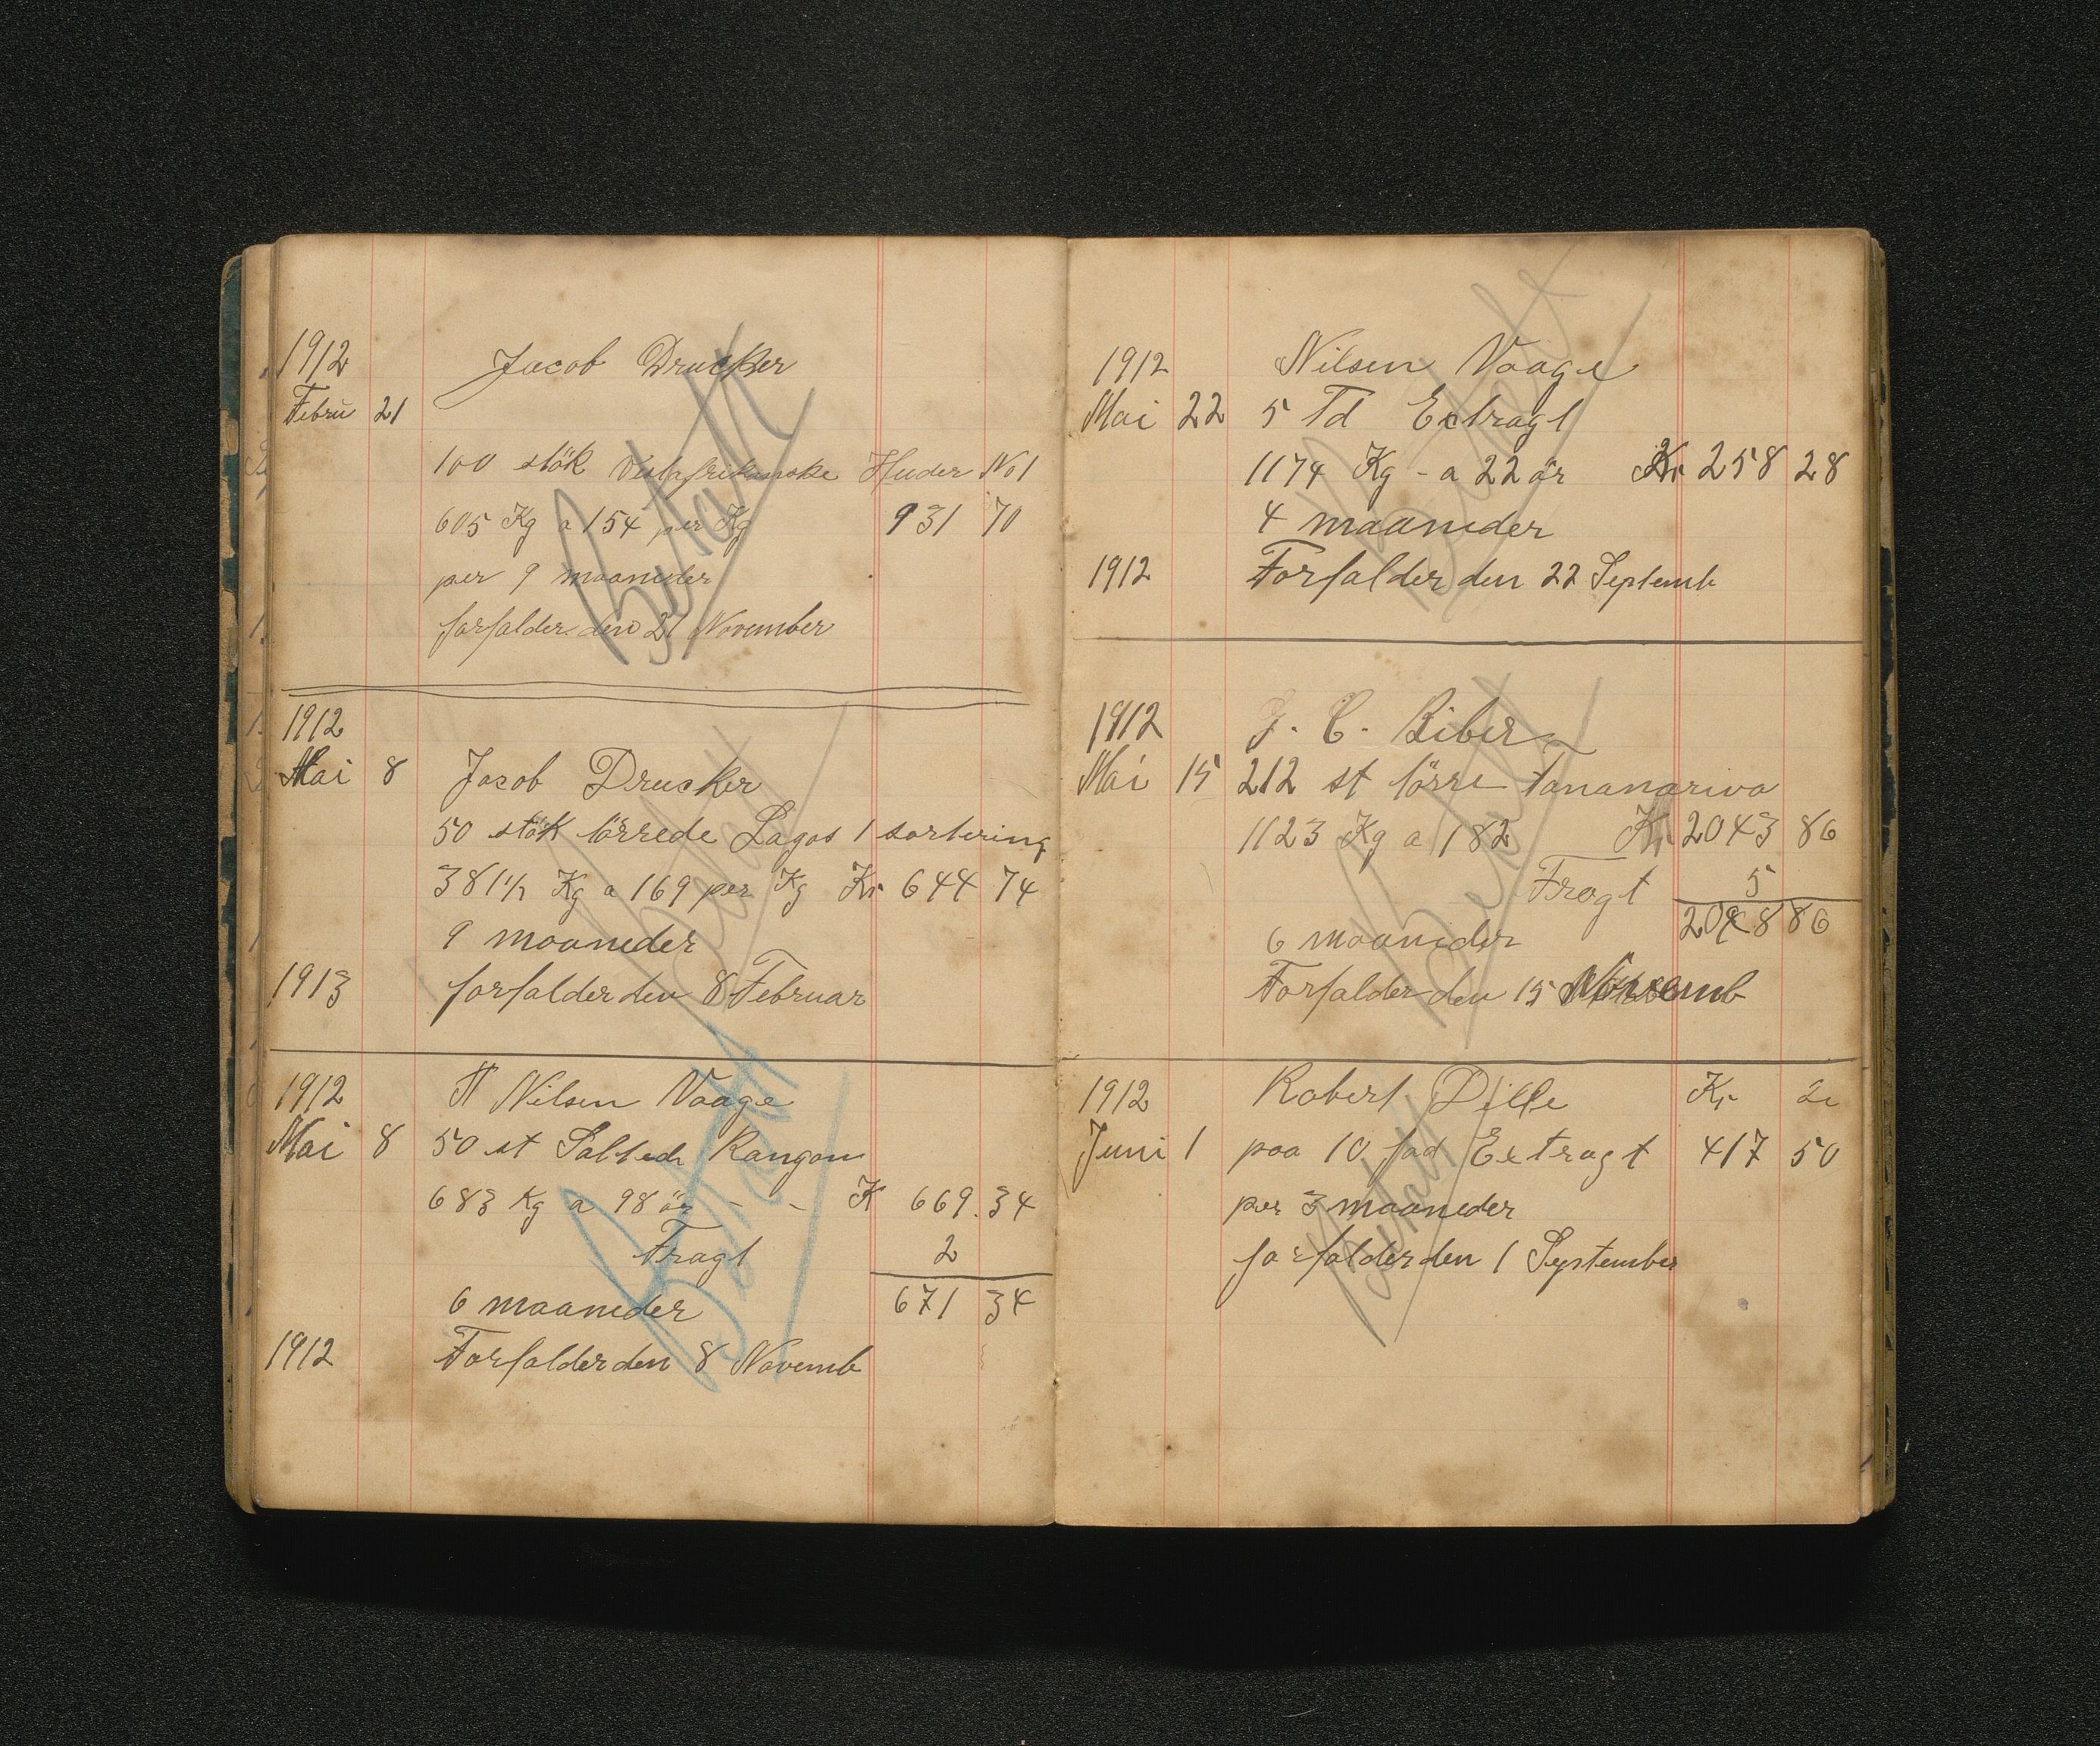 1912 Jacob Drucker
Febru 21
100 stök Vestafrikanske Huder No 1
605 Kg a 154 per Kg 931 70
per 9 maaneder
forfalder den 21 November
Betalt
1912
Mai 8 Jacob Drucker
50 stök törrede Lagos 1 sortering
381 1/2 Kg a 169 per Kg Kr 644 74
9 maaneder
1913 forfalder den 8 Februar
Betalt
1912 H Nilsen Vaage
Mai 8 50 st Salted Rangon
683 Kg a 98 ör - - K 669.34
Fragt 2
6 maaneder 671 34
1912 Forfalder den 8 Novemb
Betalt
1912 Nilsen Vaage
Mai 22 5 Td Extragt
1174 Kg - a 22 ör Kr 258 28
4 maaneder
1912 Forfalder den 22 Septemb
Betalt
1912 J. C. Biber
Mai 15 212 st törre Tananariva
1123 Kg a 182 Kr 2043 86
Fragt 5
6 maaneder 2048 86
Forfalder den 15 Novemb
Betalt
1912 Robert Dille Kr
Juni 1 paa 10 fad Extragt 417 50
per 3 maaneder
forfalder den 1 September
Betalt